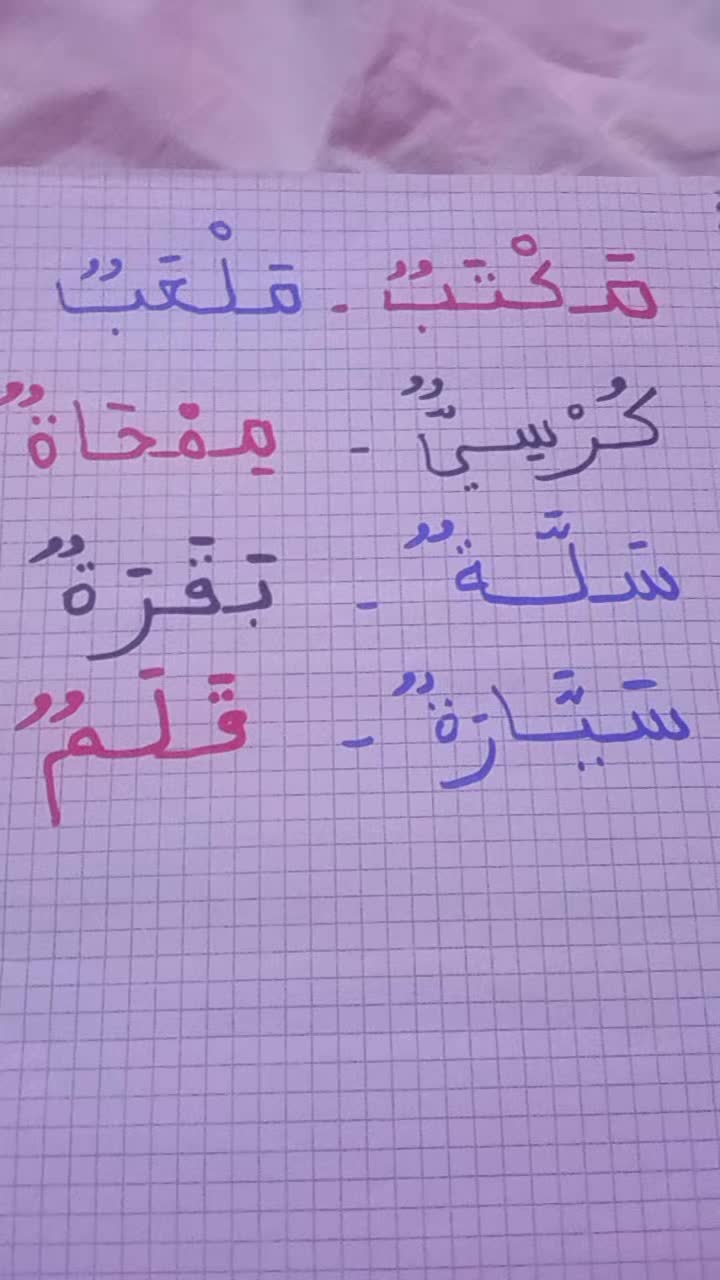 مَكْتَبٌ - مَلْعَبٌ
كُرْسِيٌّ - مِمْحَاةٌ
سَلَّةٌ - بَقَرَةٌ
سَيَّارَةٌ - قَلَمٌ